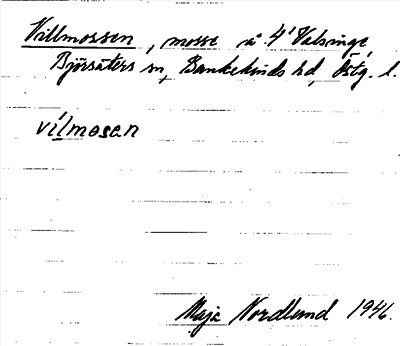 Villmossen, mosse på 4' Valsinge,
Björsäters sn, Bankekinds hd, Östg. l.
vílmosan
Maja Nordlund 1946.